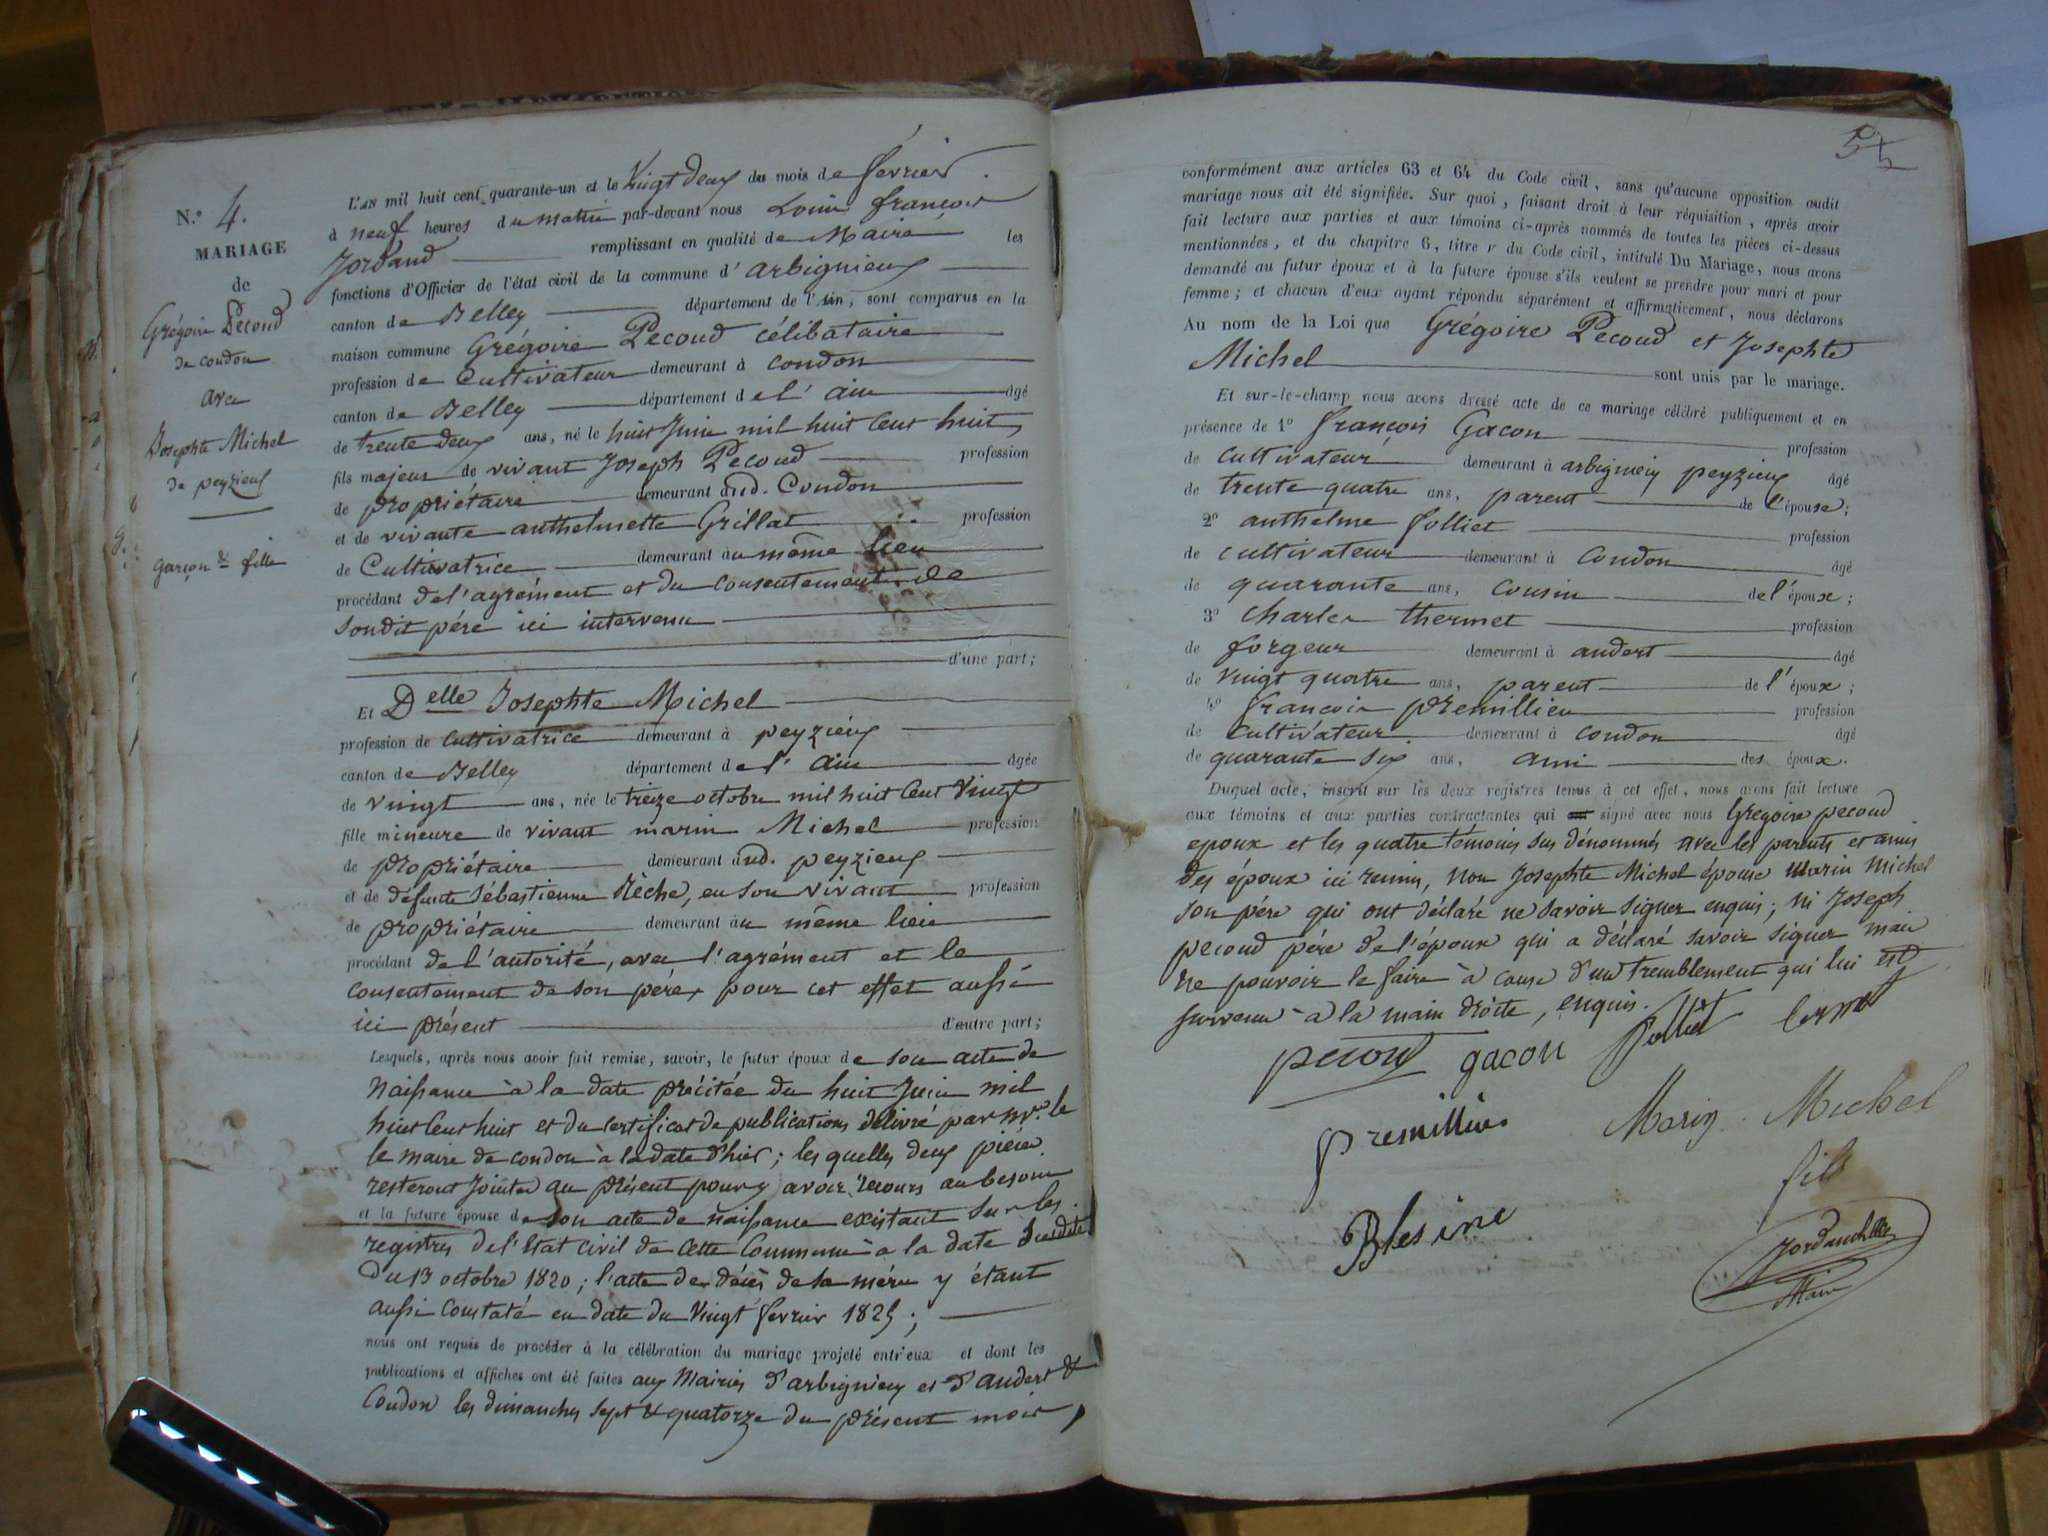 N.° 4.
MARIAGE
de
Grégoire Pecoud
de condon
avec
Josephte Michel
de peyzieux
garçon & fille
L'AN mil huit cent quarante-un et le Vingt deux du mois de février
à neuf heures du matin par-devant nous Louis françois
Jordand remplissant en qualité de Maire les
fonctions d'Officier de l'état civil de la commune d'arbignieux
canton de Belley département de l'Ain, sont comparus en la
maison commune Grégoire Pecoud célibataire
profession de Cultivateur demeurant à condon
canton de Belley département de l'ain âgé
de trente deux ans, né le huit Juin mil huit Cent huit
fils majeur de vivant Joseph Pecoud profession
de propriétaire demeurant aud. Condon
et de vivante anthelmette Grillat profession
de Cultivatrice demeurant au même lieu
procédant de l'agrément et du consentement de
sondit père ici intervenu
d'une part;
Et Delle Josephte Michel
profession de cultivatrice demeurant à peyzieux
canton de Belley département de l'ain âgée
de vingt ans, née le treize octobre mil huit Cent Vingt
fille mineure de vivant marin Michel profession
de propriétaire demeurant aud. peyzieux
et de défunte Sébastienne Rèche, en son vivant profession
de propriétaire demeurant au même lieu
procédant de l'autorité, avec l'agrément et le
consentement de son père, pour cet effet aussi
ici présent d'autre part;
Lesquels, après nous avoir fait remise, savoir, le futur époux de son acte de
Naissance à la date précitée du huit Juin mil
huit Cent huit et du certificat de publications délivré par Mr. le
le maire de condon à la date d'hier; les quelles deux pièces
resteront Jointes au présent pour y avoir recours au besoin
et la future épouse de son acte de naissance existant sur les
registres de l'Etat civil de cette Commune à la date susdite
Du 13 octobre 1820; l'acte de décès de sa mère y étant
aussi constaté en date du Vingt fevrier 1825;
nous ont requis de procéder à la célébration du mariage projeté entr'eux et dont les
publications et affiches ont été faites aux Mairies d'arbignieux et d'andert &
Condon les dimanches sept & quatorze du présent mois,
conformément aux articles 63 et 64 du Code civil, sans qu'aucune opposition audit
mariage nous ait été signifiée. Sur quoi, faisant droit à leur réquisition, après avoir
fait lecture aux parties et aux témoins ci-après nommés de toutes les pièces ci-dessus
mentionnées, et du chapitre 6, titre v du Code civil, intitulé Du Mariage, nous avons
demandé au futur époux et à la future épouse s'ils veulent se prendre pour mari et pour
femme; et chacun d'eux ayant répondu séparément et affirmativement, nous déclarons
Au nom de la Loi que Grégoire Pecoud et Josephte
Michel sont unis par le mariage.
Et sur-le-champ nous avons dressé acte de ce mariage célébré publiquement et en
présence de 1° françois Gacon profession
de cultivateur demeurant à arbignieux peyzieux âgé
de trente quatre ans, parent de l'épouse;
2° anthelme folliet profession
de cultivateur demeurant à Condon âgé
de quarante ans, cousin de l'époux;
3° charles thermet profession
de forgeur demeurant à andert âgé
de vingt quatre ans, parent de l'époux;
4° francois premillieu profession
de Cultivateur demeurant à condon âgé
de quarante six ans, ami des époux.
Duquel acte, inscrit sur les deux registres tenus à cet effet, nous avons fait lecture
aux témoins et aux parties contractantes qui signé avec nous Grégoire pecoud
epoux et les quatre témoins sus dénommés avec les parents et amis
des époux ici reunis, non Josephte Michel épouse Marin Michel
son père qui ont déclaré ne savoir signer enquis; ni Joseph
pecoud père de l'époux qui a déclaré savoir signer mais
ne pouvoir le faire à cause d'un tremblement qui lui est
survenu à la main droite, enquis.
pecoud gacon folliet
premillieu Marin Michel
fils
Blesine
Maire